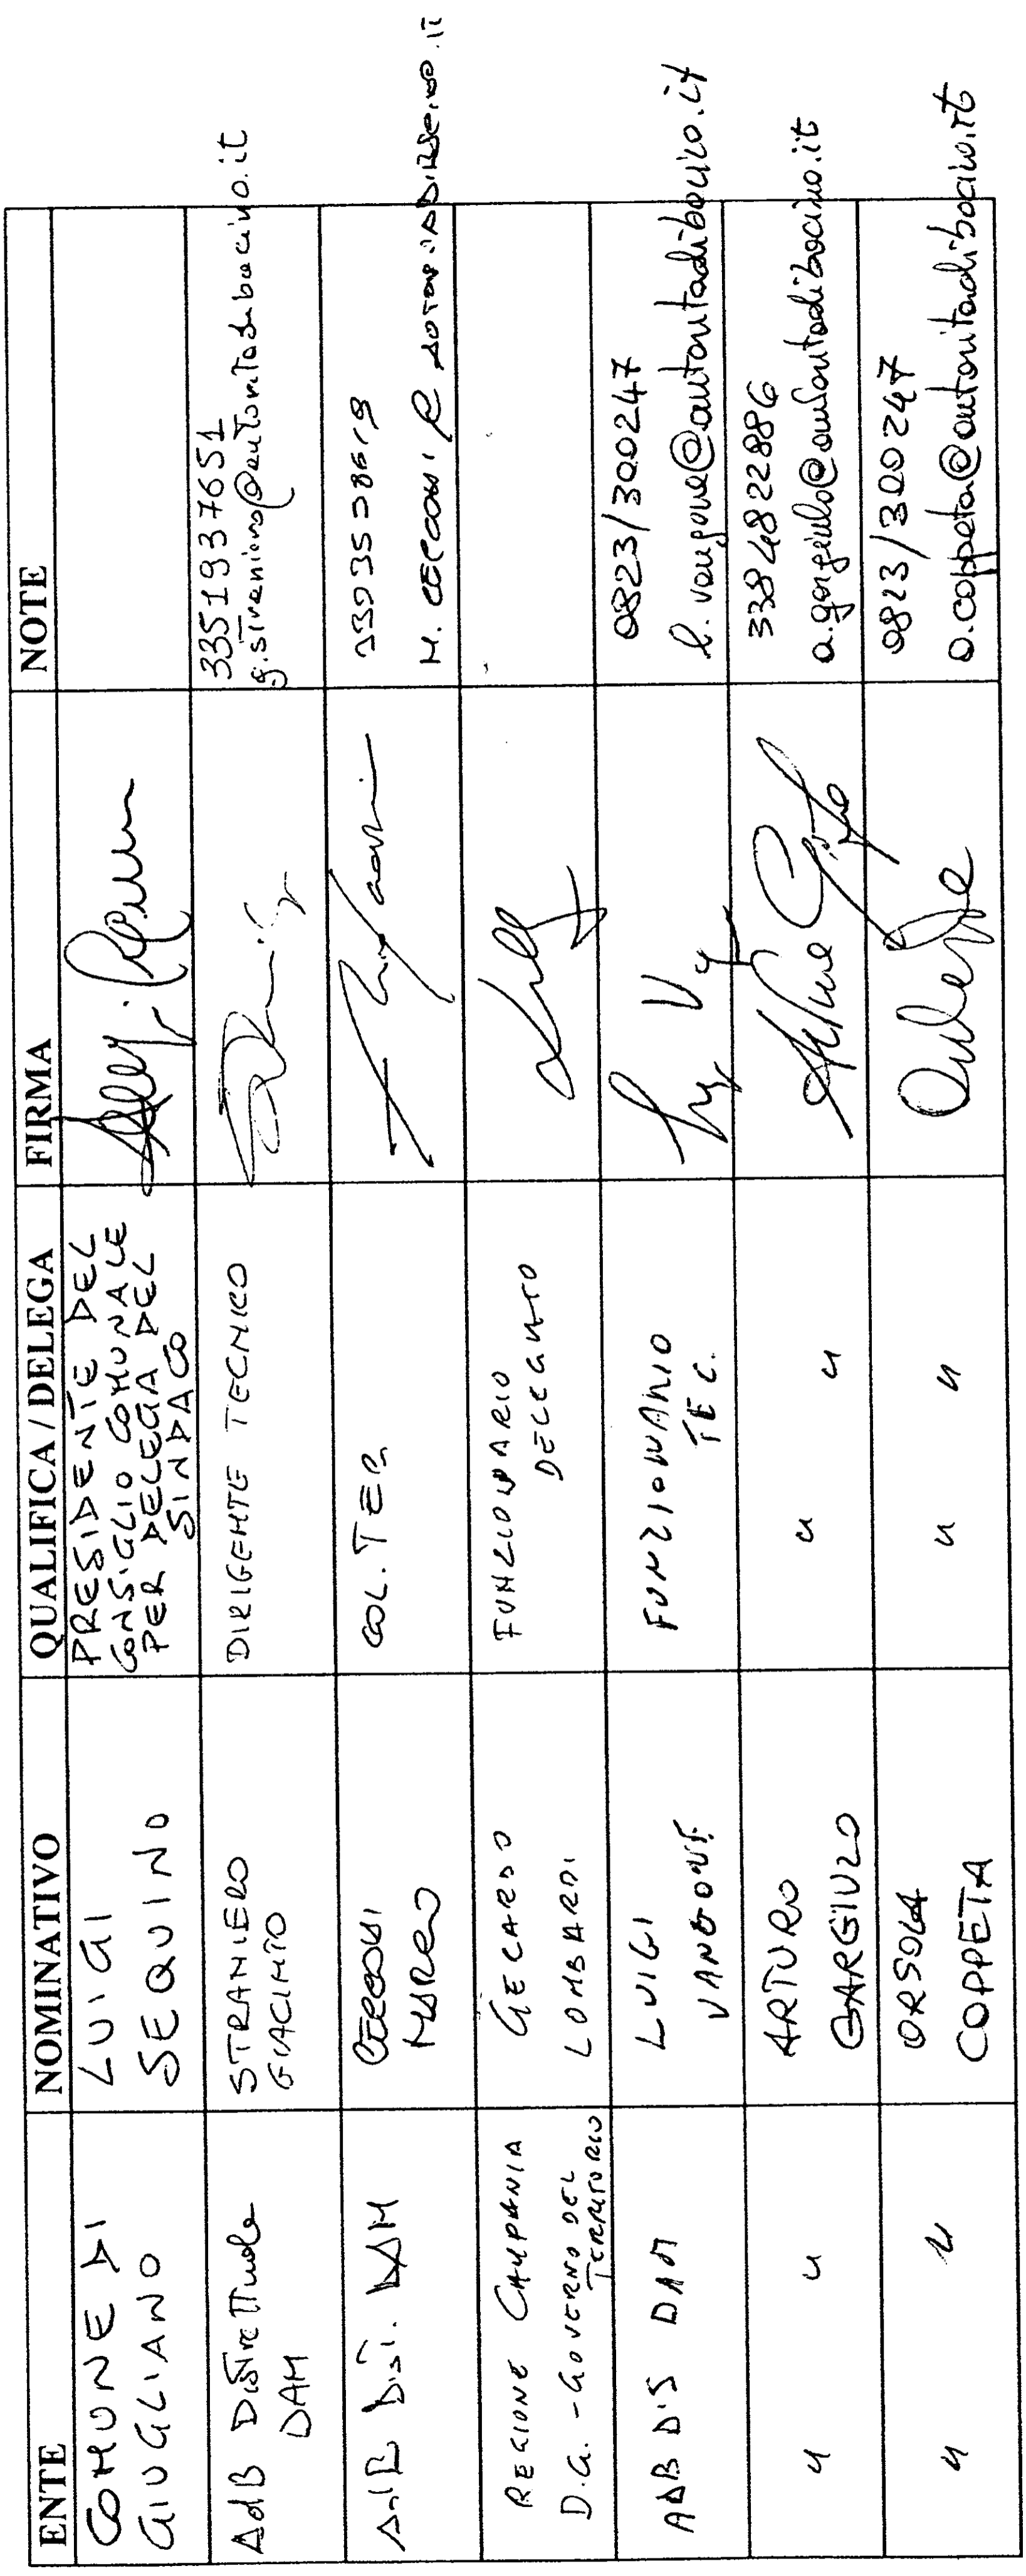 ENTE NOMINATIVO QUALIFICA / DELEGA FIRMA NOTE
COMUNE DI
GIUGLIANO
LUIGI
SEQUINO
PRESIDENTE DEL
CONSIGLIO COMUNALE
PER DELEGA DEL
SINDACO
AdB Distrettuale
DAM
STRANIERO
GIACINTO
DIRIGENTE TECNICO
3351937651
g.straniero@autoritadibacino.it
AdB Dist. DAM
MARCO
COL. TER
REGIONE CAMPANIA
D.G. - GOVERNO DEL
TERRITORIO
GERARDO
LOMBARDI
FUNZIONARIO
DELEGATO
ADB DIS DAM
LUIGI
VANGONE
FUNZIONARIO
TEC.
0823/300247
l.vangone@autoritadibacino.it
" "
ARTURO
GARGIULO
" "
3384822886
a.gargiulo@autoritadibacino.it
" "
ORSOLA
COPPETA
" "
0823/300247
o.coppeta@autoritadibacino.it